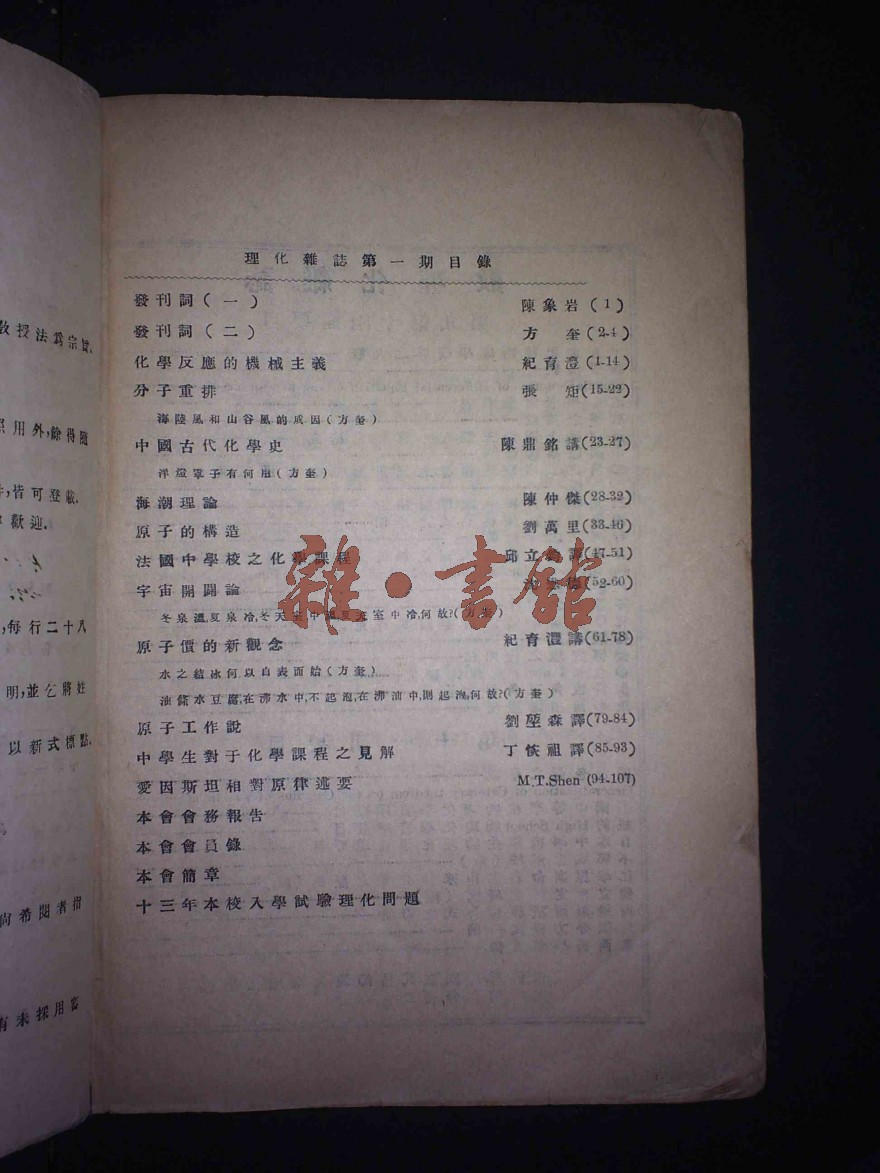 教授法爲宗旨.
照用外,餘得隨
件,皆可登載.
歡迎.
,每行二十八
明,並乞將姓
以新式標點.
尚希閱者指
有未採用寄
理化雜誌第一期目錄
發刊詞(一) 陳象岩(1)
發刊詞(二) 方奎(2-4)
化學反應的機械主義 紀育澧(1-14)
分子重排 張矩(15-22)
海陸風和山谷風的成因(方奎)
中國古代化學史 陳鼎銘講(23-27)
洋燈罩子有何用(方奎)
海潮理論 陳仲傑(28-32)
原子的構造 劉萬里(33-46)
法國中學校之化學課程 邱立 譯(47-51)
宇宙開闢論 (52-60)
冬泉溫,夏泉冷,冬天室中 夏天室中冷,何故?(方奎)
原子價的新觀念 紀育灃講(61-78)
水之結冰何以自表面始(方奎)?
油條水豆腐,在沸水中,不起泡,在沸油中,則起泡,何故?(方奎)
原子工作說 劉堃森譯(79-84)
中學生對于化學課程之見解 丁恢祖譯(85-93)
愛因斯坦相對原律述要 M.T.Shen (94-107)
本會會務報告
本會會員錄
本會簡章
十三年本校入學試驗理化問題
雜·書館